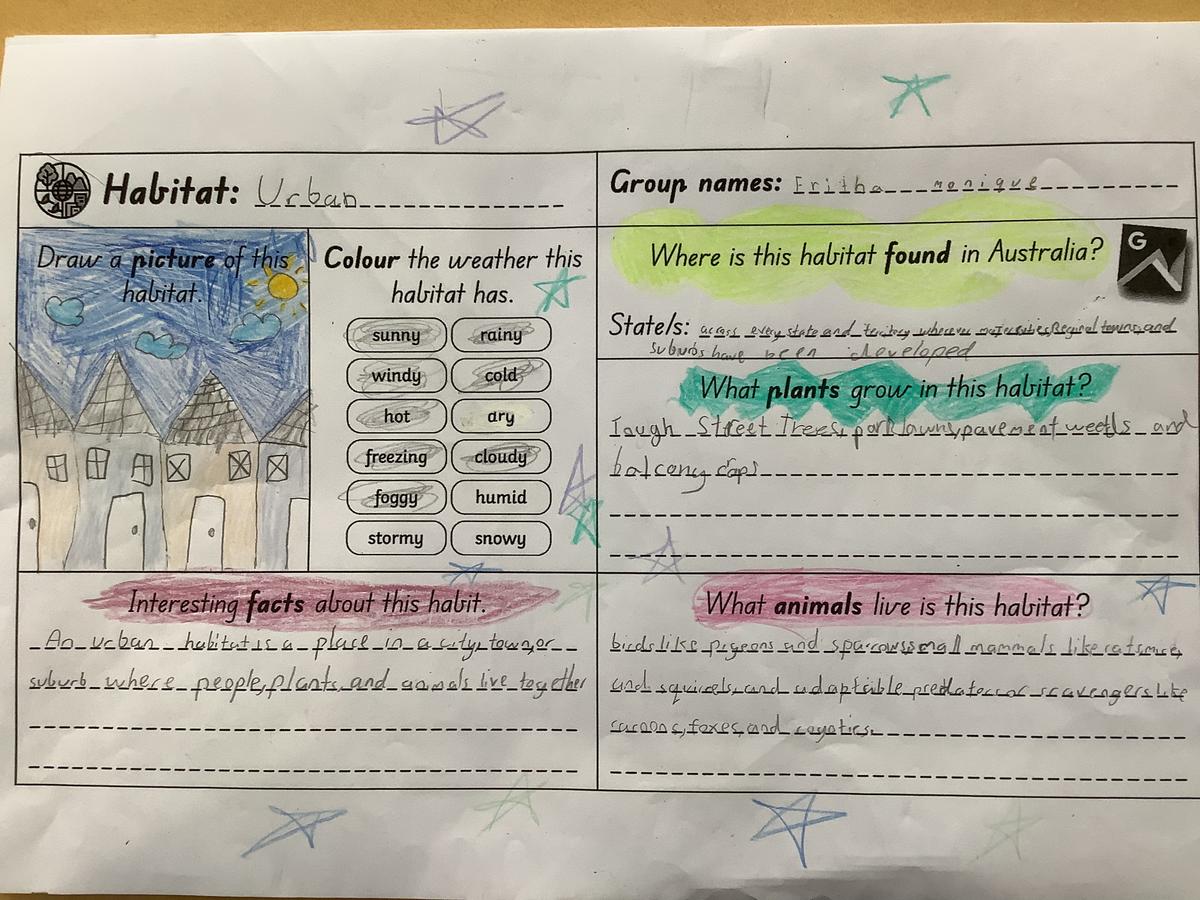 Habitat: Urban
Group names: Eritha monique
Draw a picture of this
habitat.
Colour the weather this
habitat has.
sunny
rainy
windy
cold
hot
ary
freezing
cloudy
foggy
humid
stormy
snowy
Where is this habitat found in Australia?
G
State/s: across every state and territory wherever major cities, Reginal towns, and
suburbs have been developed
What plants grow in this habitat?
Tough Street Trees, park lawns, pavement weeds and
balcony
Interesting facts about this habit.
An urban habitat is a place in a city, town, or
suburb where people, plants, and animals live together
What animals live is this habitat?
birds like pigeons and sparrows small mammals like rats mice,
and squirels, and adaptable predator or scavengers like
racoons, foxes, and coyotics.